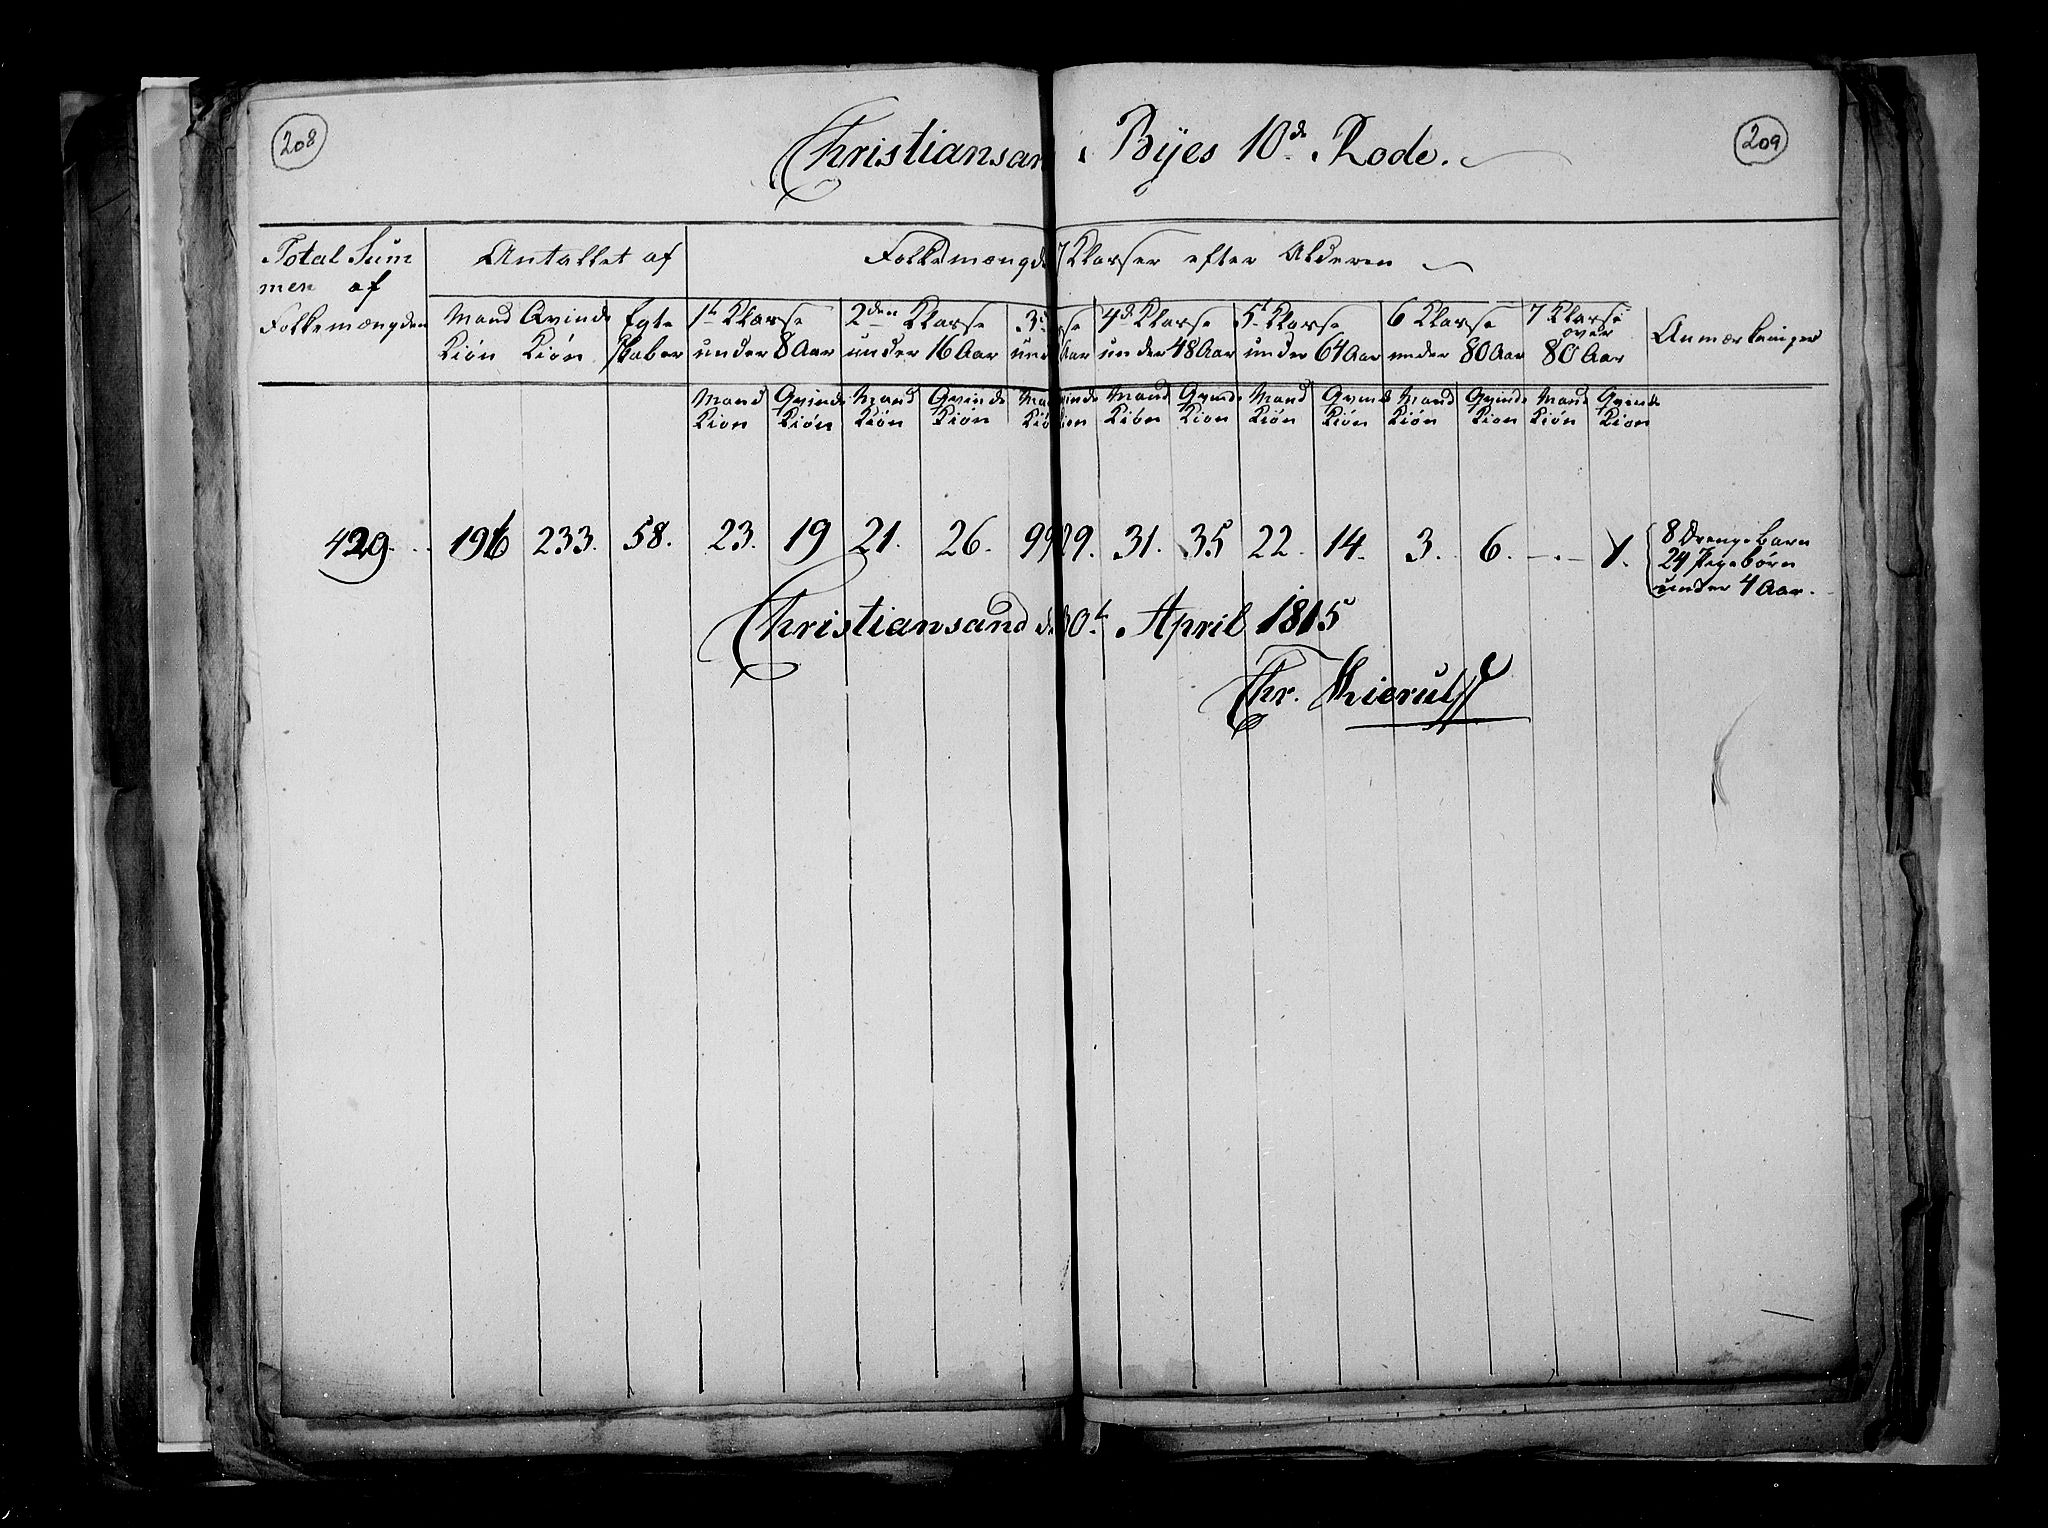 208
209
Christiansan Byes 10de Rode.
Total Sum
men af
Folkemængden
Antallet af
Folkemængde 7 Klasser efter Alderen
Mand Kiön
Qvinde Kiön
Egte skaber
1t Klasse under 8 Aar
2den Klasse under 16 Aar
3d sse und Aar
4d Klasse under 48 Aar
5t Klasse under 64 Aar
6 Klasse under 80 Aar
7 Klasse over 80 Aar
Anmærkninger
Mand Kion Qvinde Kiön Mand Kiön Qvinde Kiön Ma Kiö inde ion Mand Kiön Qvinde Kion Mand Kiön Qvinde Kiön Mand Kiön Qvinde Kion Mand Kiön Qvinde Kion
429. 196 233. 58. 23. 19 21. 26. 9 29. 31. 35 22. 14. 3. 6. — . — 1.
8 Drengebarn
24 Pigebörn
under 4 Aar.
Christiansand d 0t April 1815
Chr. Kierulff